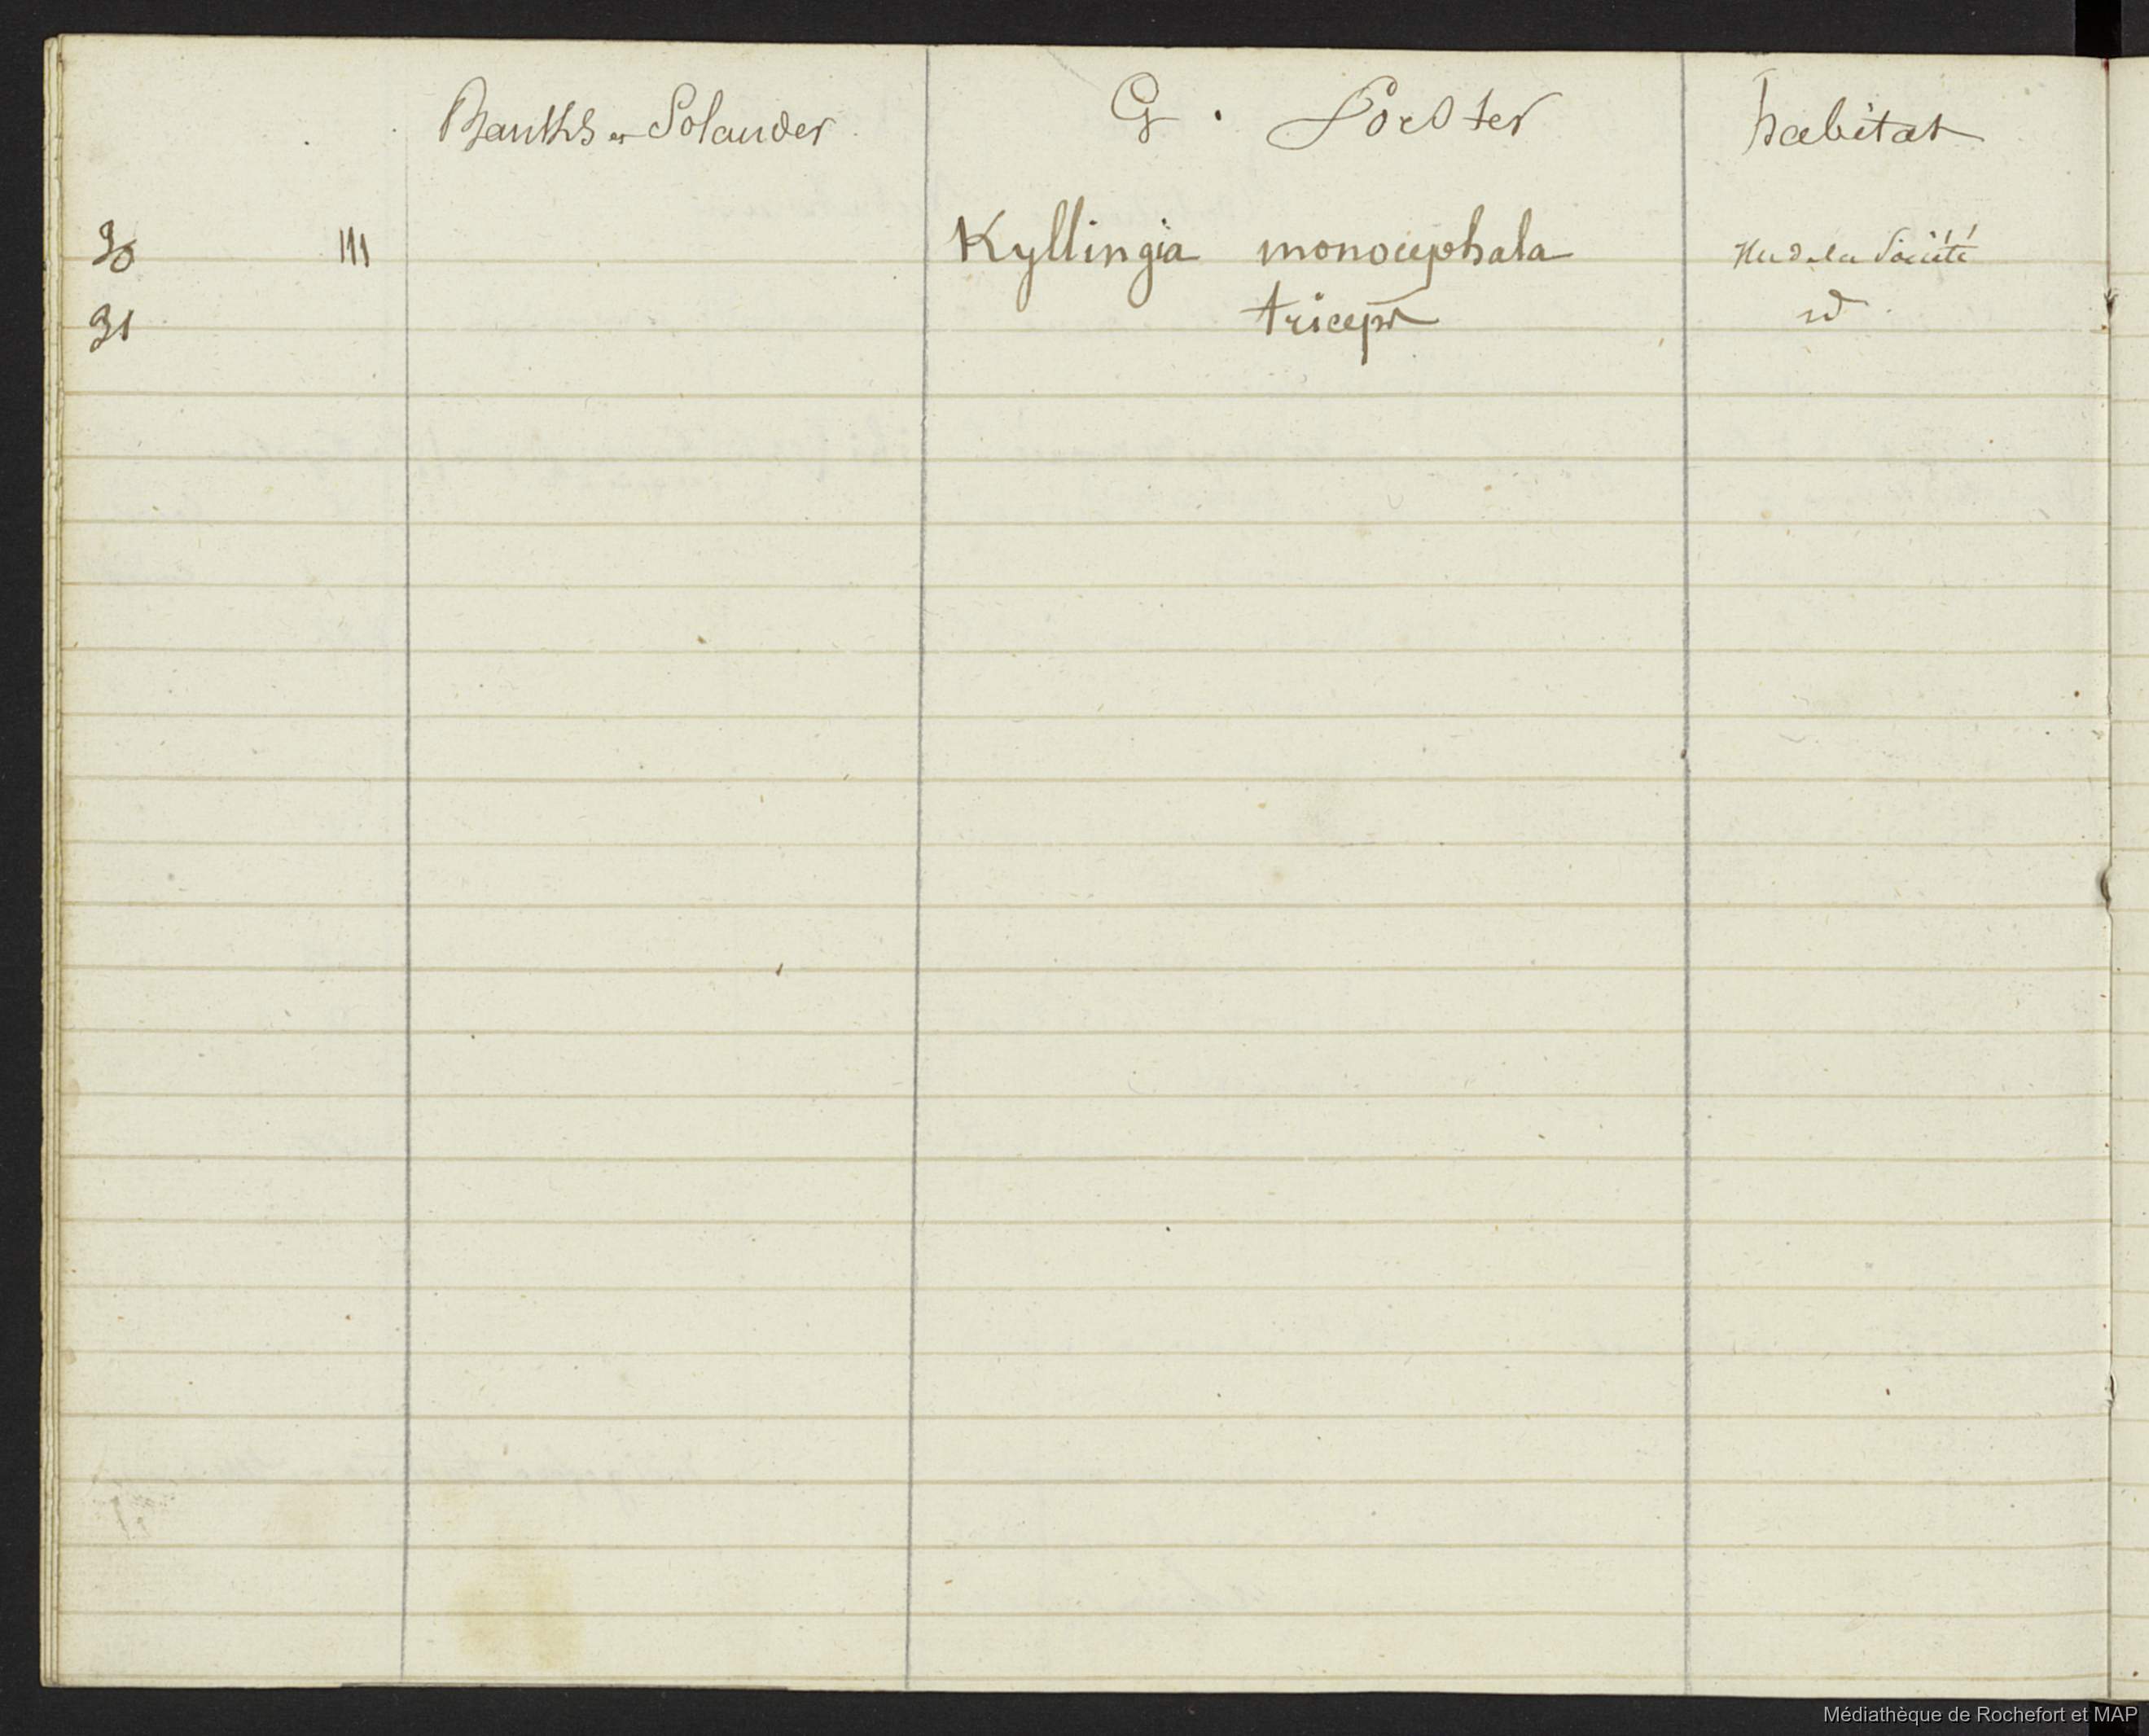 Banks et Solander G. Forster habitat
30 111 Kyllingia monocephala Iles de la Société
31 triceps id
Médiathèque de Rochefort et MAP